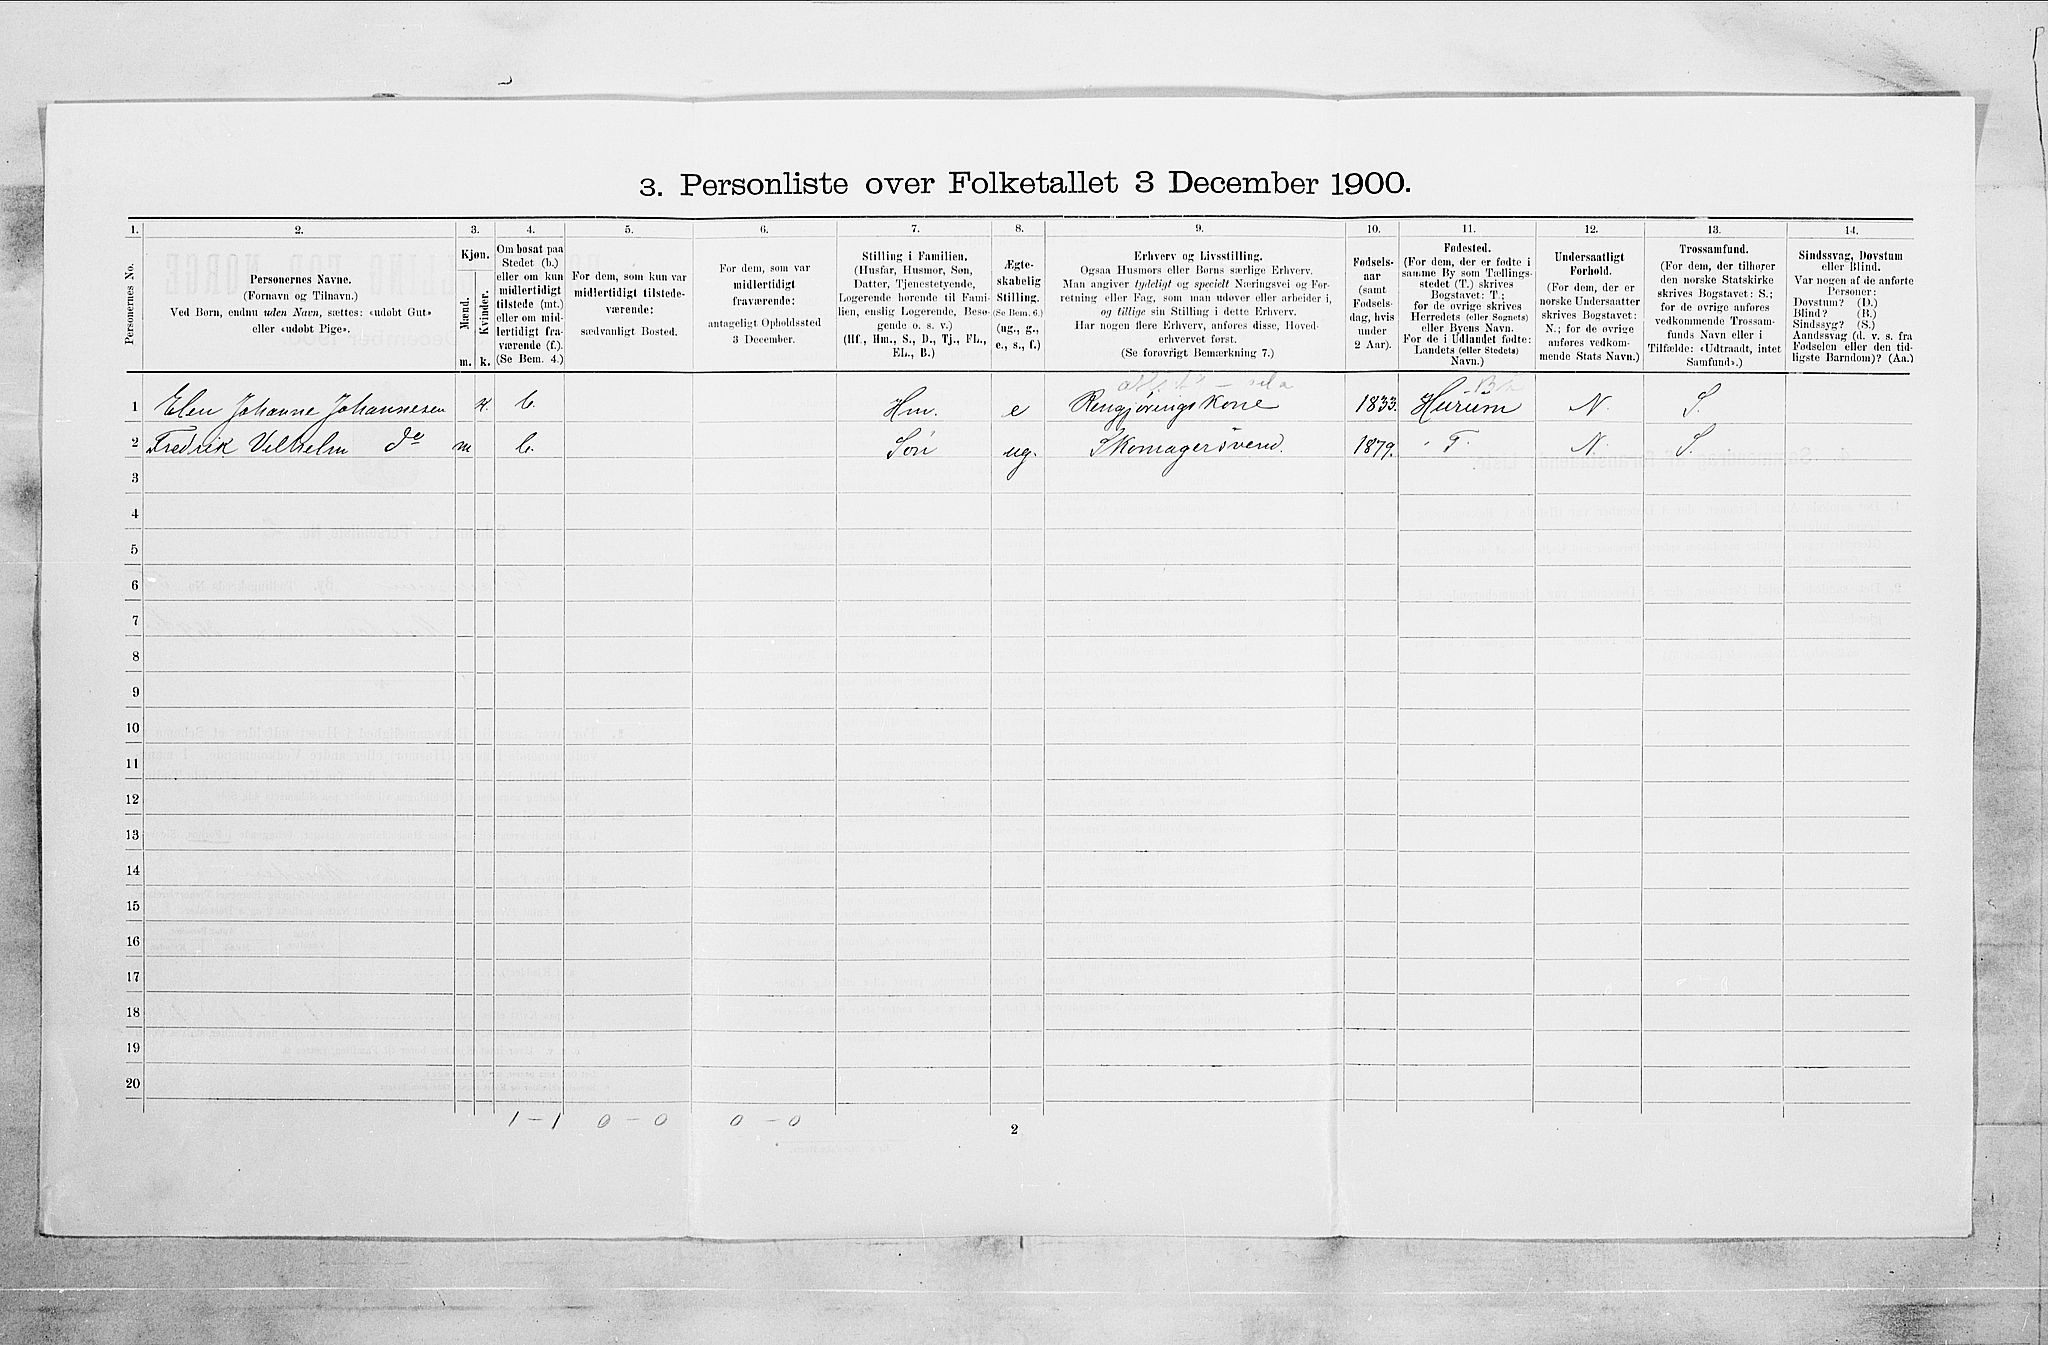 3. Personliste over Folketallet 3 December 1900.
1. 2. 3. 4. 5. 6. 7. 8. 9. 10. 11. 12. 13. 14.
Personernes No.
Personernes Navne.
(Fornavn og Tilnavn.)
Ved Børn, endnu uden Navn, sættes: «udøbt Gut»
eller «udøbt Pige».
Kjøn.
Mænd.
Kvinder.
m. k.
Om bosat paa
Stedet (b.)
eller om kun
midlertidigt
tilstede (mt.)
eller om mid-
lertidigt fra-
værende (f.).
(Se Bem. 4.)
For dem, som kun var
midlertidigt tilstede-
værende:
sædvanligt Bosted.
For dem, som var
midlertidigt
fraværende:
antageligt Opholdssted
3 December.
Stilling i Familien.
(Husfar, Husmor, Søn,
Datter, Tjenestetyende,
Logerende hørende til Fami-
lien, enslig Logerende, Besø-
gende o. s. v.)
(Hf., Hm., S., D., Tj., FL.,
EL., B.)
Ægte-
skabelig
Stilling.
(Se Bem. 6.)
(ug., g.,
e., s., f.)
Erhverv og Livsstilling.
Ogsaa Husmors eller Børns særlige Erhverv.
Man angiver tydeligt og specielt Næringsvei og For-
retning eller Fag, som man udøver eller arbeider i,
og tillige sin Stilling i dette Erhverv.
Har nogen flere Erhverv, anføres disse, Hoved-
erhvervet først.
(Se forøvrigt Bemærkning 7.)
Fødsels-
aar
(samt
Fødsels-
dag, hvis
under
2 Aar).
Fødested.
(For dem, der er fødte i
samme By som Tællings-
stedet (T.) skrives
Bogstavet: T.;
for de øvrige skrives
Herredets (eller Sognets)
eller Byens Navn.
For de i Udlandet fødte:
Landets (eller Stedets)
Navn.)
Undersaatligt
Forhold.
(For dem, der er
norske Undersaatter
skrives Bogstavet:
N.; for de øvrige
anføres vedkom-
mende Stats Navn.)
Trossamfund.
(For dem, der tilhører
den norske Statskirke
skrives Bogstavet: S.;
for de øvrige anføres
vedkommende Trossam-
funds Navn eller i
Tilfælde: «Udtraadt, intet
Samfund».)
Sindssvag, Døvstum
eller Blind.
Var nogen af de anførte
Personer:
Døvstum? (D.)
Blind? (B.)
Sindssyg? (S.)
Aandssvag (d. v. s. fra
Fødselen eller den tid-
ligste Barndom)? (Aa.)
1 Elen Johanne Johannesen k. b. Hm. e Rengjøringskone 1833. Hurum N. S.
2 Fredrik Vilhelm do m b. Søn ug. Skomagersvend. 1879. T. N. S.
3
4
5
6
7
8
9
10
11
12
13
14
15
16
17
18
19
20
1 – 1 0 – 0 0 – 0
2